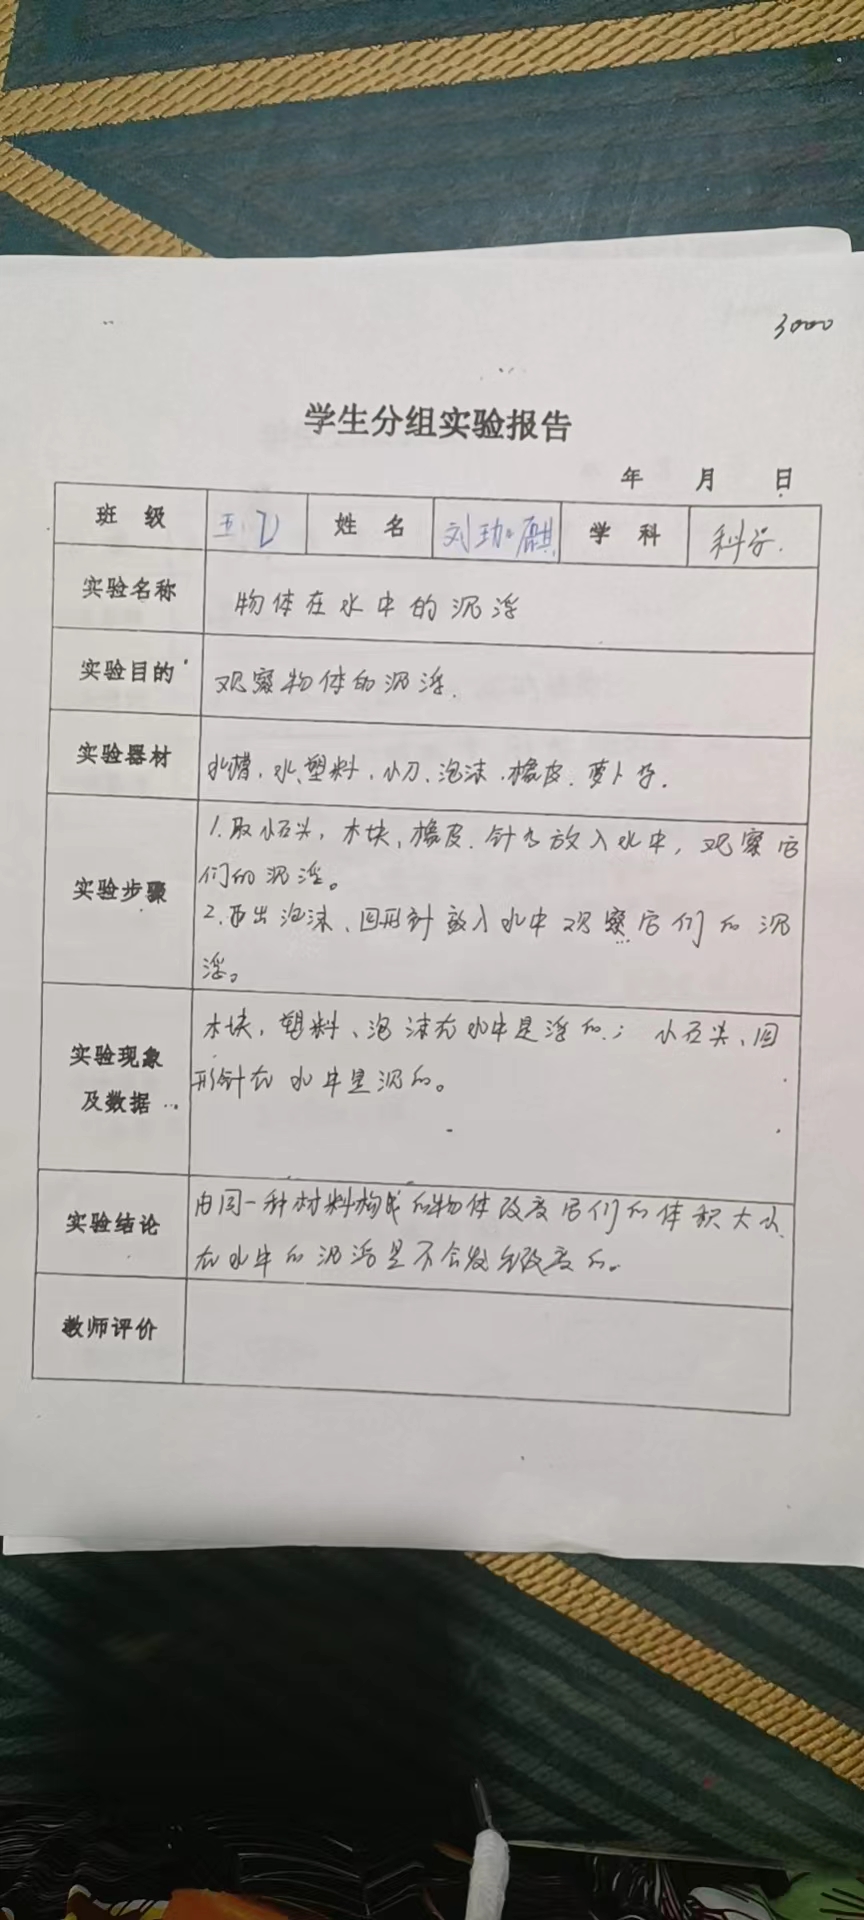 3000
学生分组实验报告
年 月 日
班 级 五.2 姓 名 刘 麒 学 科 科学.
实验名称 物体在水中的沉浮
实验目的 观察物体的沉浮.
实验器材 水槽、水、塑料、小刀、泡沫、橡皮、萝卜等.
1.取小石头,木块、橡皮、针等放入水中,观察它
们的沉浮。
实验步骤
2.再出泡沫、回形针放入水中观察它们的沉
浮。
木块,塑料、泡沫在水中是浮的;小石头、回
实验现象
形针在水中是沉的。
及数据
由同一种材料构成的物体改变它们的体积大小
实验结论
在水中的沉浮是不会发生改变的。
教师评价